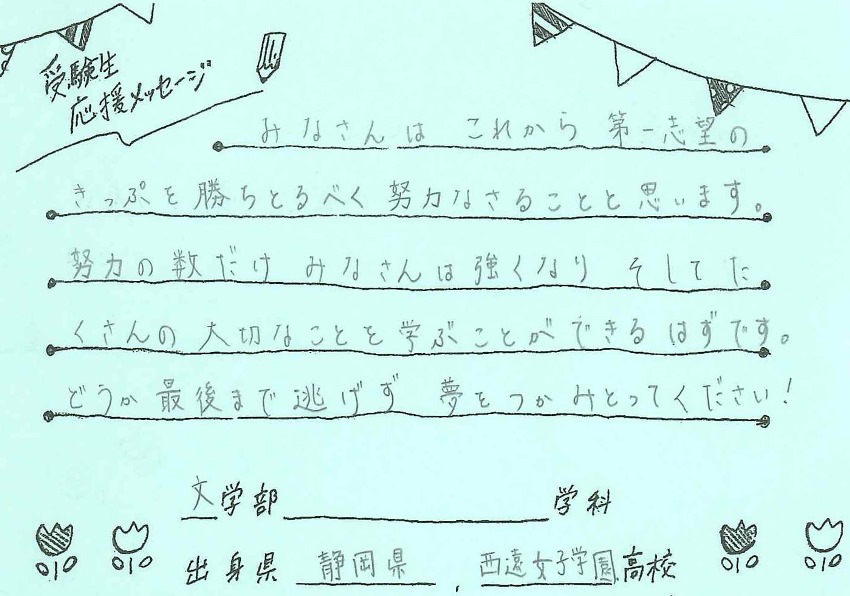 受験生
応援メッセージ
みなさんは これから 第一志望の
きっぷを勝ちとるべく 努力なさることと思います。
努力の数だけ みなさんは強くなり そしてた
くさんの 大切なことを学ぶことができるはずです。
どうか最後まで逃げず 夢をつかみとってください！
文学部 学科
出身県 静岡県 , 西遠女子学園高校